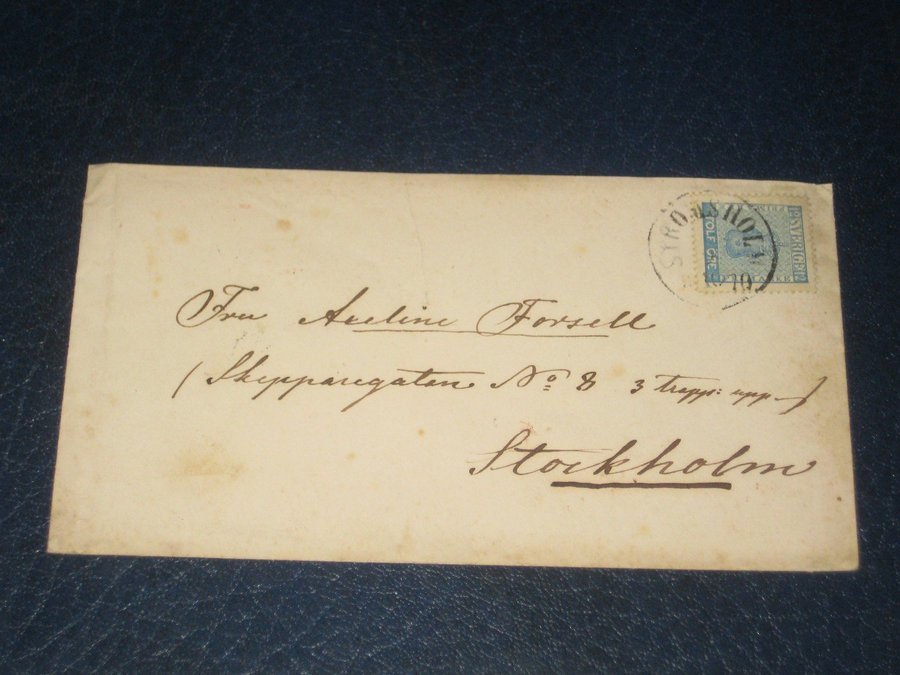 STRÖMSHOLM
10
SVERIGE
TOLF ÖRE
Fru Aveline Forsell
(Skepparegatan No 8 3 trapp: upp.)
Stockholm